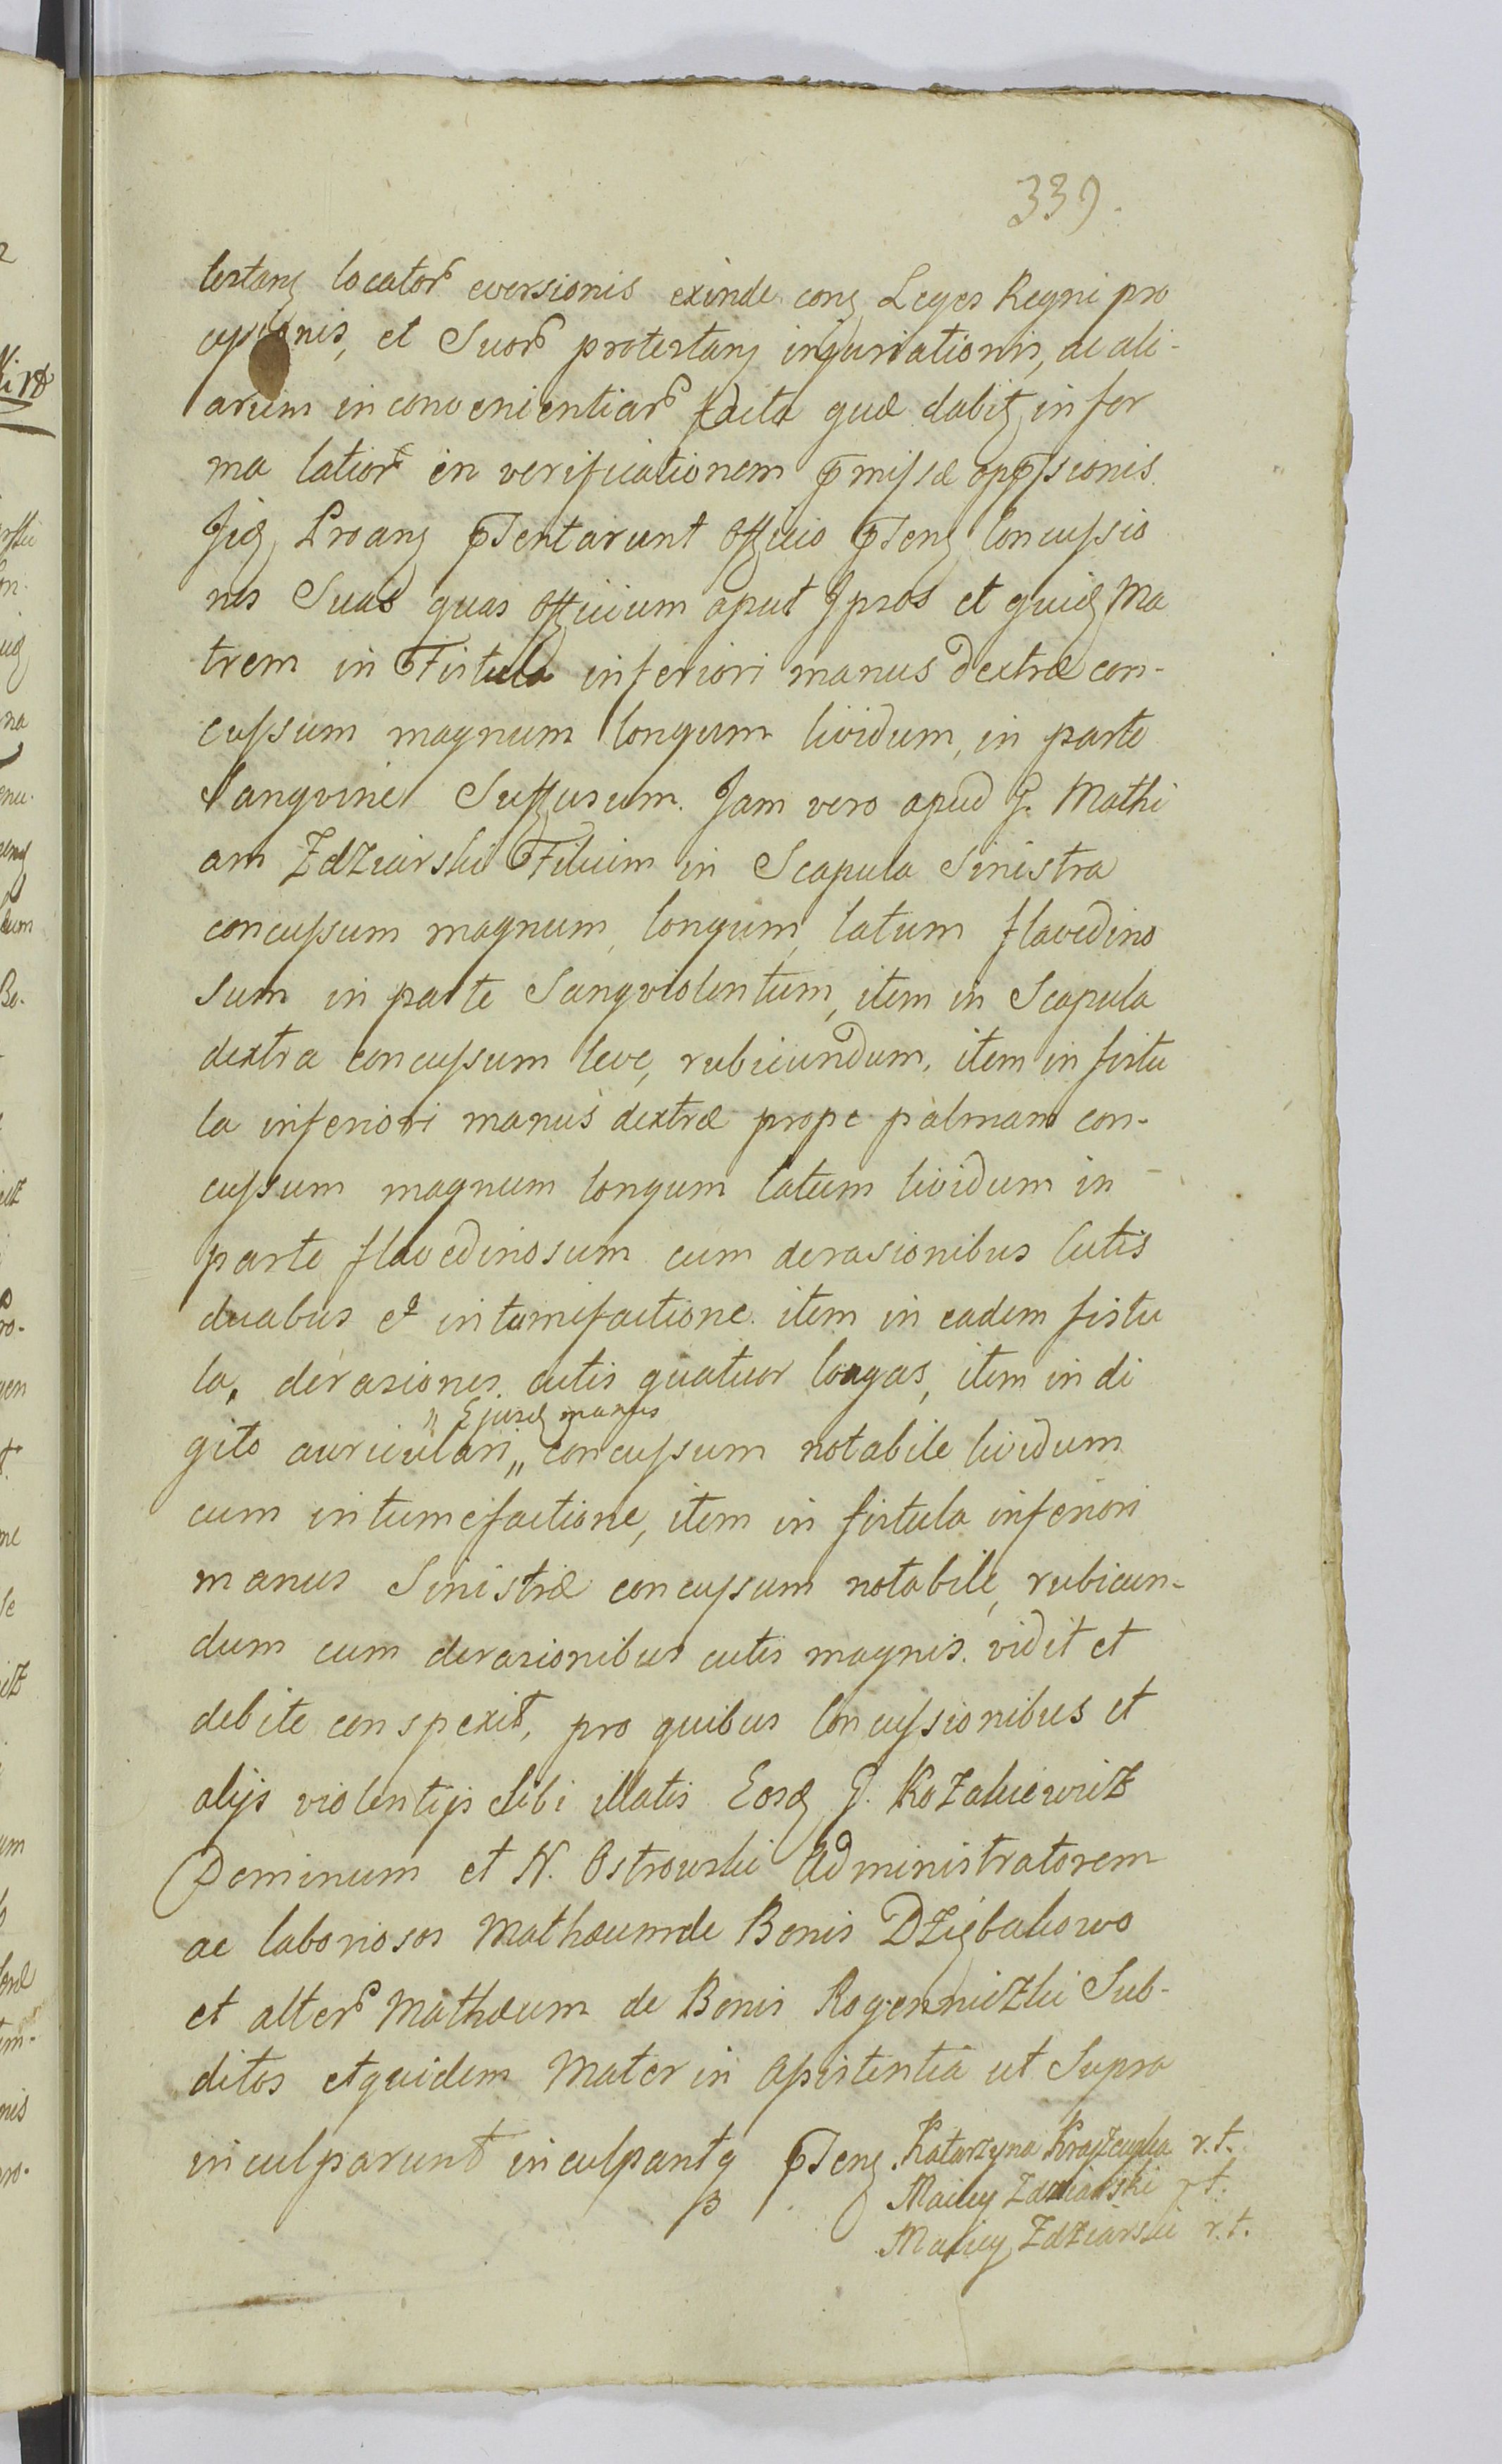 339.
testanꝫ locatorꝫ eversionis exinde conꝫ Leges Regni pro
cessionis, et Suorꝫ protestanꝫ injuriationis, ac ali-
arum inconvenientiarꝫ facta quæ dabitꝫ in for
ma latiorꝫ in verificationem p̄missæ opp̄ssionis.
Jidꝫ Proanꝫ p̄sentarunt Officio p̄senꝫ Concussio
nes Suas quas Officium aput Jpsos et quidꝫ Ma
trem in Fistula inferiori manus dextræ con-
cussum magnum longum lividum, in parte
Sangvine Suffusum. Jam vero apud G. Mathi
am Zdziarski Filium in Scapula Sinistra
concussum magnum, longum, latum flavedino
sum in parte Sangviolentum, item in Scapula
dextra concussum leve, rubicundum, item in fistu
la inferiori manus dextræ prope palmam con-
cussum magnum longum latum lividum in
parte flavedinosum cum derasionibus Cutis
duabus et intumefactione. item in eadem fistu
la, derasiones cutis quatuor longas, item in di
" Ejusdꝫ manus
gito auriculari " concussum notabile lividum
cum intumefactione, item in fistula inferiori
manus Sinistræ concussum notabile, rubicun-
dum cum derasionibus cutis magnis. vidit et
debite conspexit, pro quibus Concussionibus et
alijs violentijs Sibi illatis Eosdꝫ G. Kozakiewicz
Dominum et N. Ostrowski Administratorem
ac laboriosos Mathæum de Bonis Dziębakowo
et alterꝫ Mathæum de Bonis Rogenniczki Sub-
ditos et quidem Mater in Assistentia ut Supra
inculparunt inculpantq p̄senꝫ. Katarzyna r. t.
Maciey Zdziarski r. t.
Maciey Zdziarski r. t.